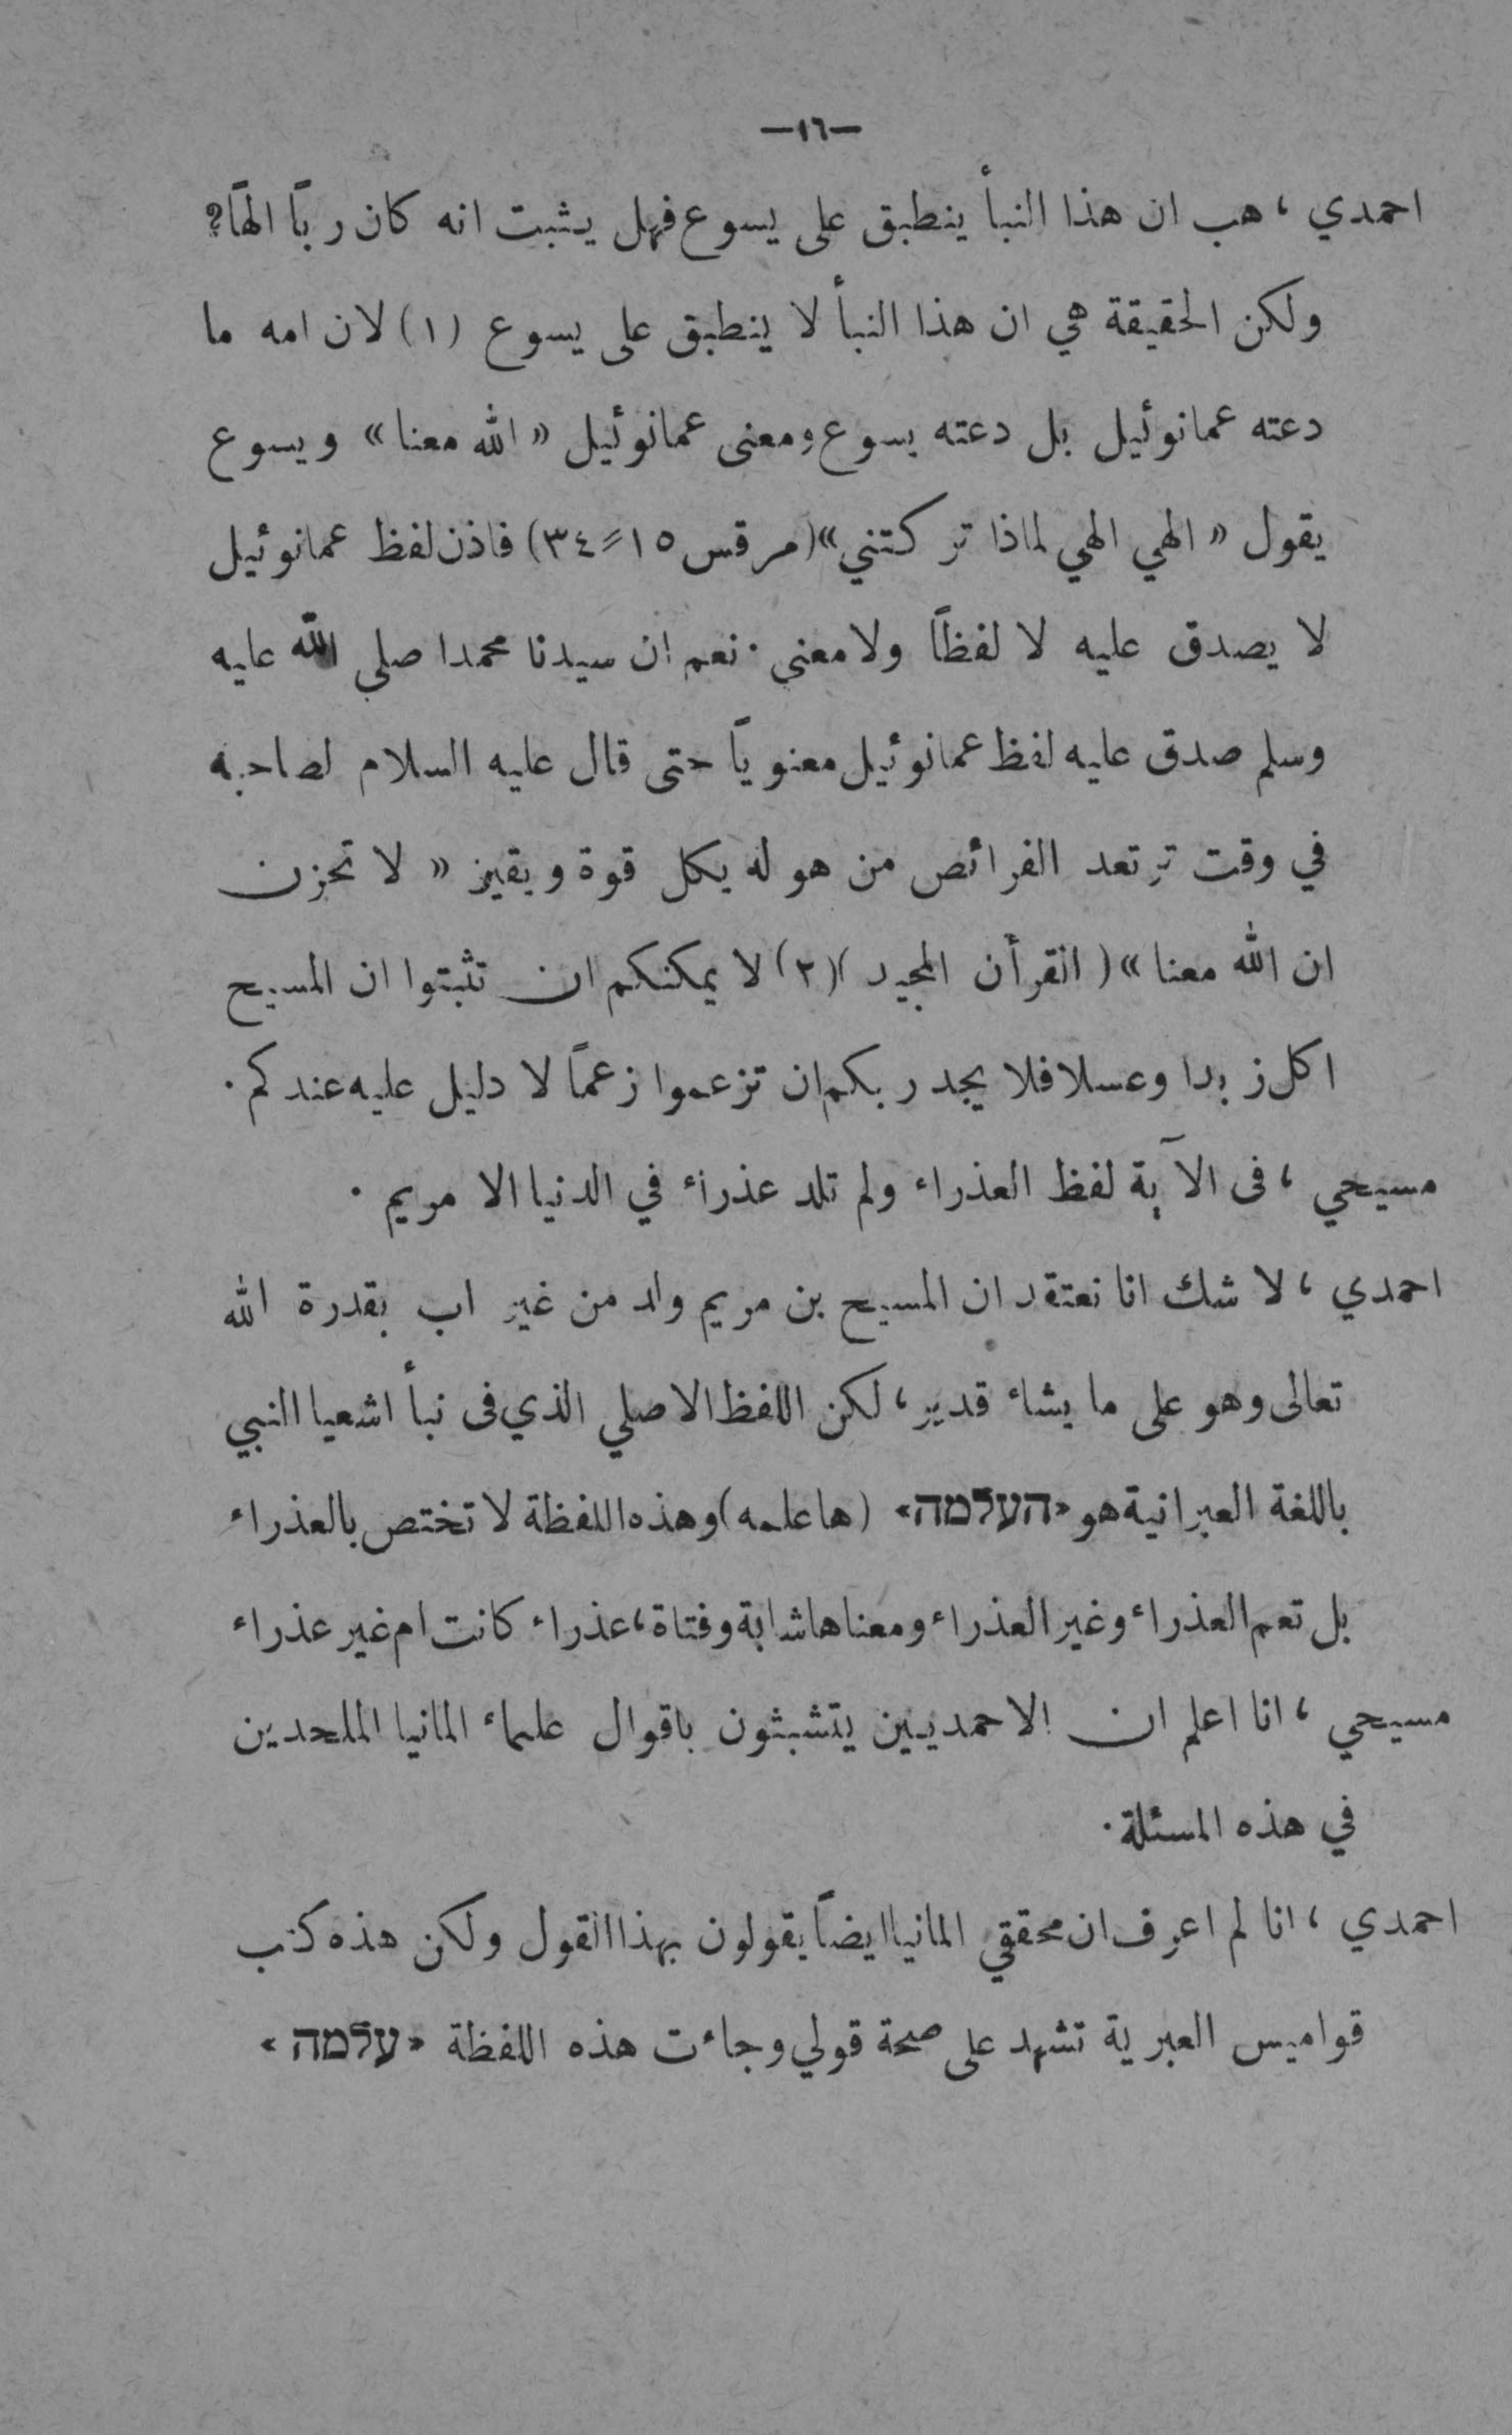 —١٦—
احمدي ، هب ان هذا النبأ ينطبق على يسوع فهل يثبت انه كان رباً الهاً ؟
ولكن الحقيقة هي ان هذا النبأ لا ينطبق على يسوع (١) لان امه ما
دعته عمانوئيل بل دعته يسوع ومعنى عمانوئيل « الله معنا » ويسوع
يقول « الهي الهي لماذا تركتني» (مرقس ١٥ = ٣٤) فاذن لفظ عمانوئيل
لا يصدق عليه لا لفظاً ولا معنى · نعم ان سيدنا محمدا صلى الله عليه
وسلم صدق عليه لفظ عمانوئيل معنوياً حتى قال عليه السلام لصاحبه
في وقت ترتعد الفرائص من هوله بكل قوة ويقين « لا تحزن
ان الله معنا » ( القرأن المجيد ) (٢) لا يمكنكم ان تثبتوا ان المسيح
اكل زبدا وعسلا فلا يجدر بكم ان تزعموا زعماً لا دليل عليه عندكم ·
مسيحي ، فى الآية لفظ العذراء ولم تلد عذراء في الدنيا الا مريم ·
احمدي ، لا شك انا نعتقد ان المسيح بن مريم ولد من غير اب بقدرة الله
تعالى وهو على ما يشاء قدير ، لكن اللفظ الاصلي الذي فى نبأ اشعيا النبي
باللغة العبرانية هو «העלמה» (هاعلمه) وهذه اللفظة لا تختص بالعذراء
بل تعم العذراء وغير العذراء ومعناها شابة وفتاة ، عذراء كانت ام غير عذراء
مسيحي ، انا اعلم ان الاحمديين يتشبثون باقوال علماء المانيا الملحدين
في هذه المسئلة ·
احمدي ، انا لم اعرف ان محققي المانيا ايضاً يقولون بهذا القول ولكن هذه كتب
قواميس العبرية تشهد على صحة قولي وجاءت هذه اللفظة «עלמה»